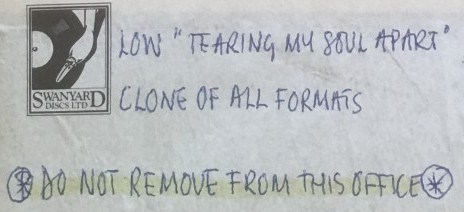 LOW "TEARING MY SOUL APART"
SWANYARD
DISCS LTD
CLONE OF ALL FORMATS
DO NOT REMOVE FROM THIS OFFICE